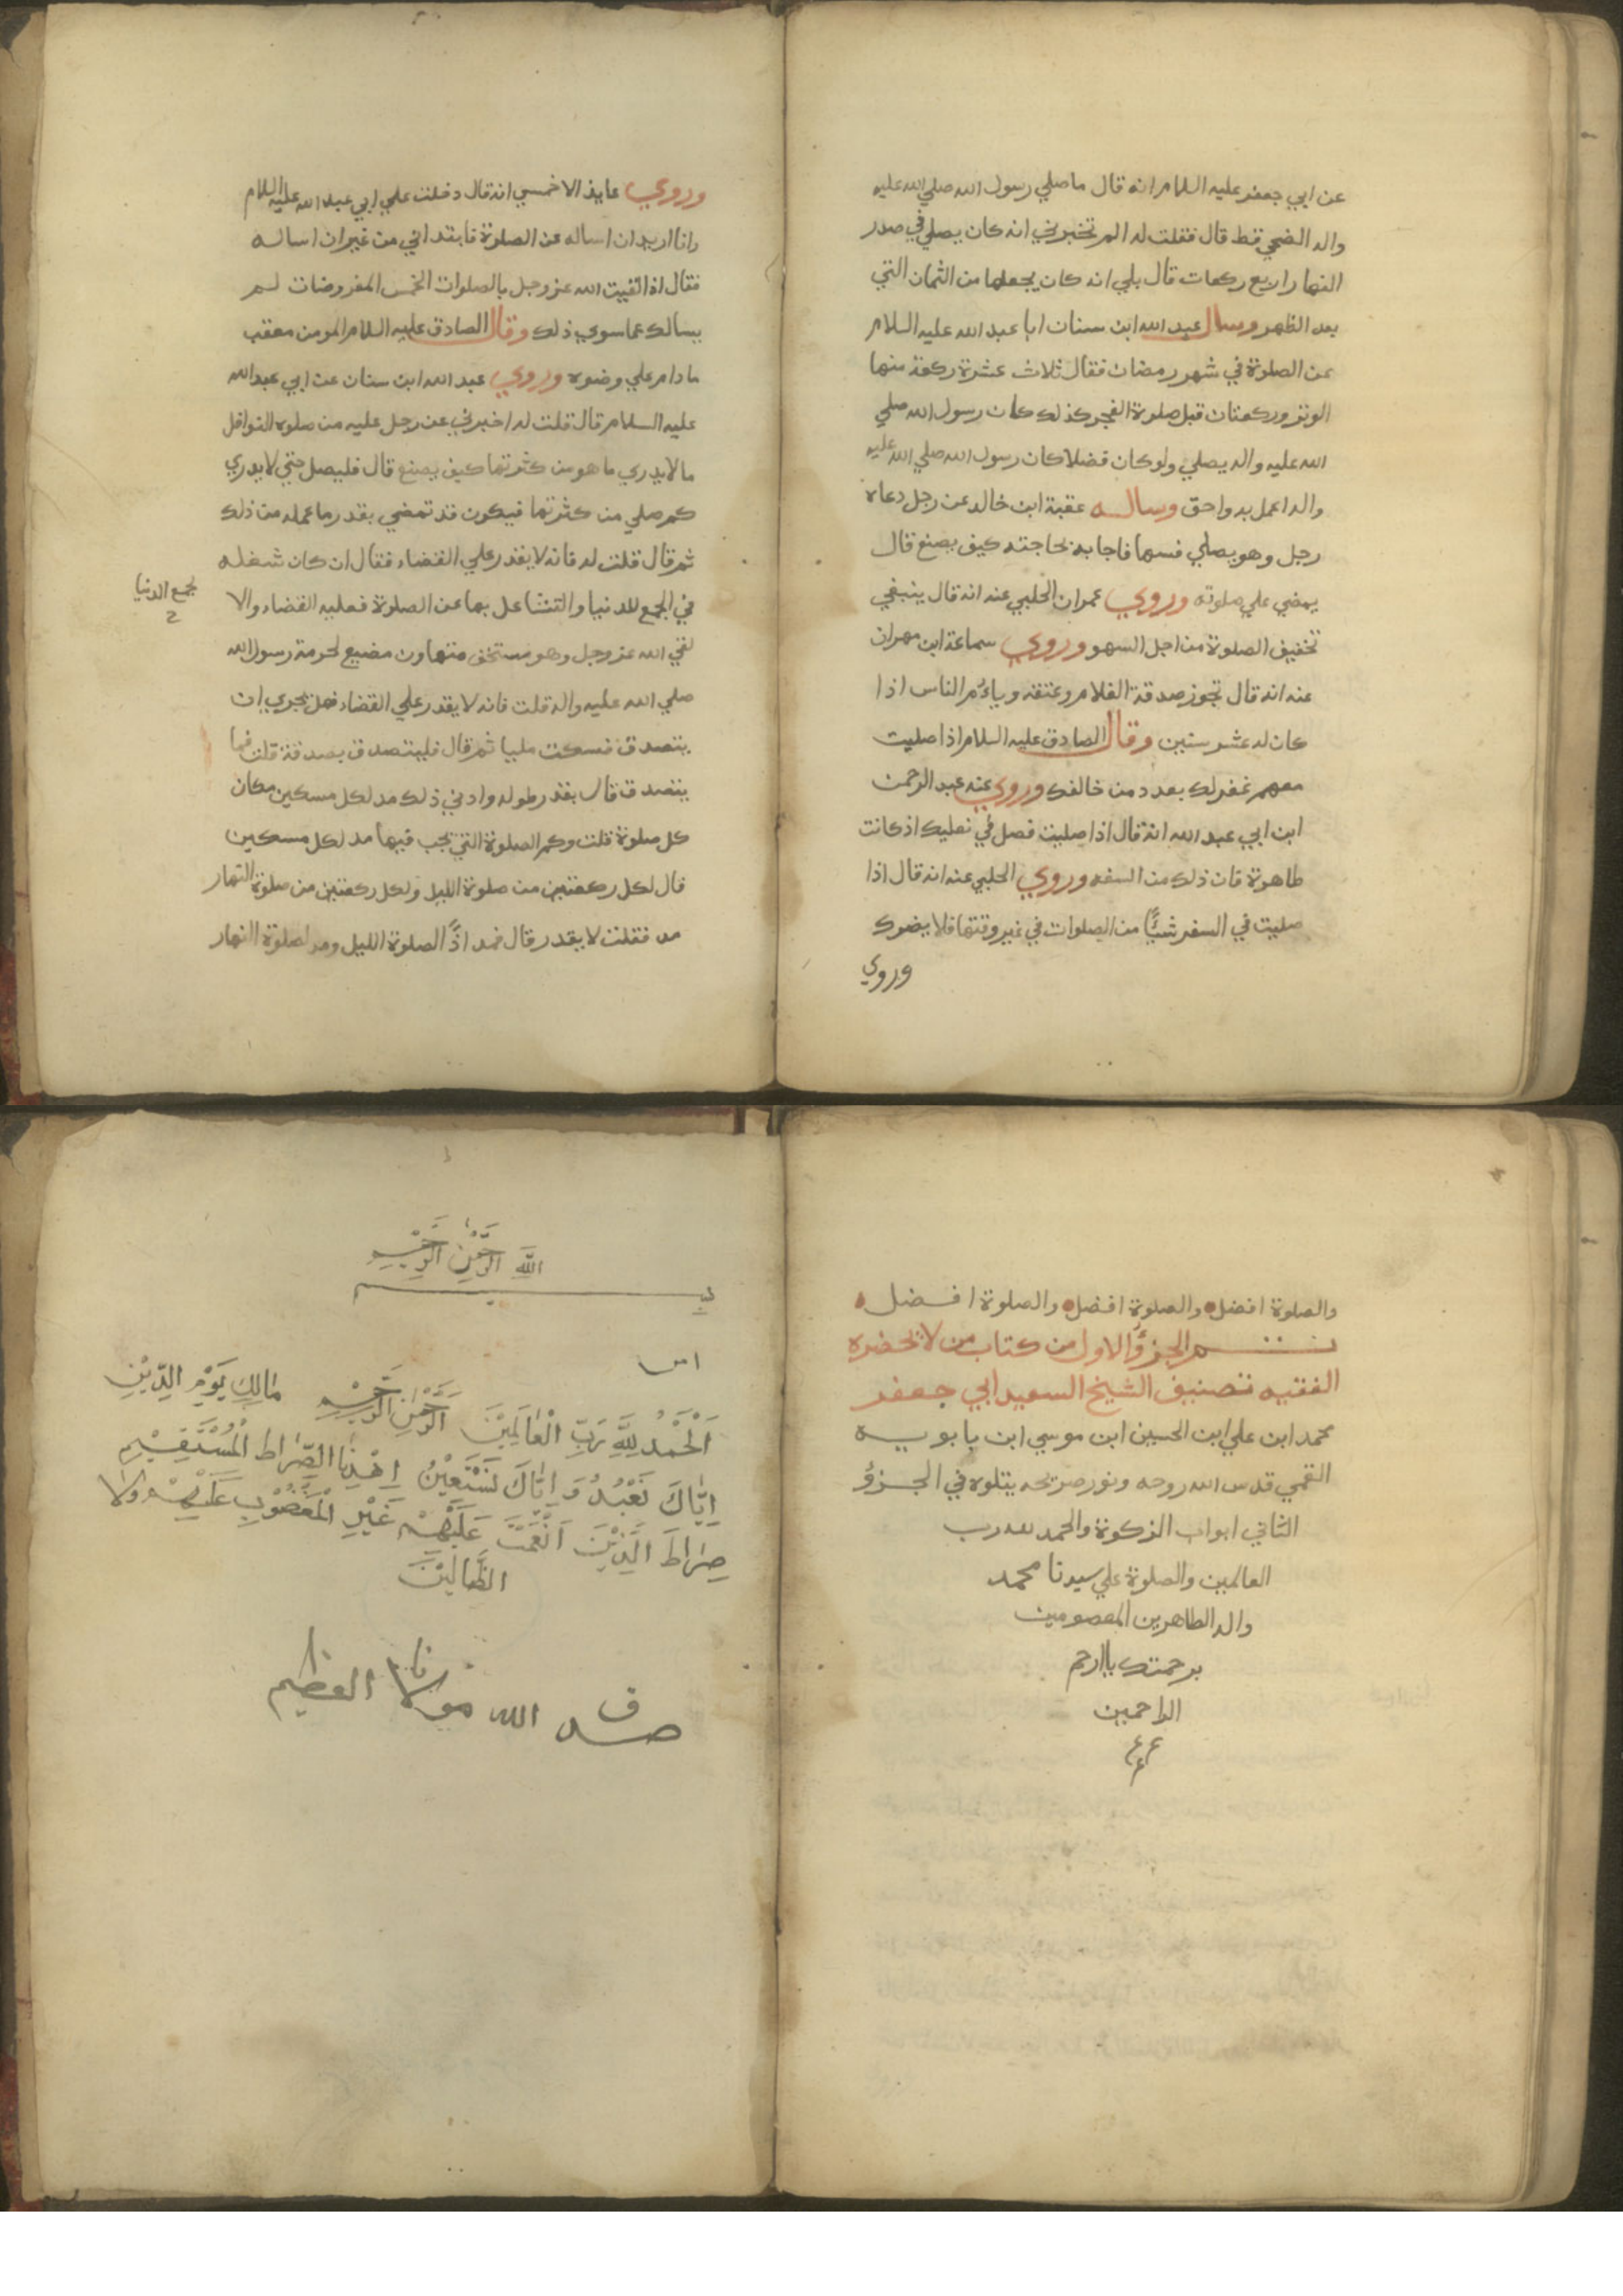 عن ابي جعفر عليه السلام انه قال ما صلي رسول الله صلي الله عليه
واله الضحي قط قال فقلت له الم تخبرني انه كان يصلي في صدر
النهار اربع ركعات قال بلي انه كان يجعلها من الثمان التي
بعد الظهر وسال عبد الله ابن سنان ابا عبد الله عليه السلام
عن الصلوة في شهر رمضان فقال ثلاث عشرة ركعة منها
الوتر وركعتان قبل صلوة الفجر كذلك كان رسول الله صلي
الله عليه واله يصلي ولو كان فضلا كان رسول الله صلي الله عليه
واله اعمل به واحق وساله عقبة ابن خالد عن رجل دعاه
رجل وهو يصلي فسها فاجابه بحاجته كيف يصنع قال
يمضي علي صلوته وروي عمران الحلبي عنه انه قال ينبغي
تخفيف الصلوة من اجل السهو وروي سماعة ابن مهران
عنه انه قال تجوز صدقة الغلام وعتقه ويأم الناس اذا
كان له عشر سنين وقال الصادق عليه السلام اذا صليت
معهم غفر لك بعدد من خالفك وروي عنه عبد الرحمن
ابن ابي عبد الله انه قال اذا صليت فصل في نعليك اذ كانت
طاهرة فان ذلك من السنه وروي الحلبي عنه انه قال اذا
صليت في السفر شيئًا من الصلوات في غير وقتها فلا يضرك
وروي
وروي عايذ الاحمسي انه قال دخلت علي ابي عبد الله عليه السلام
وانا اريد ان اساله عن الصلوة فابتداني من غير ان اساله
فقال اذا لقيت الله عز وجل بالصلوات الخمس المفروضات لم
يسالك عما سوي ذلك وقال الصادق عليه السلام المومن معقب
ما دام علي وضوه وروي عبد الله ابن سنان عن ابي عبد الله
عليه السلام قال قلت له اخبرني عن رجل عليه من صلوة النوافل
ما لا يدري ما هو من كثرتها كيف يصنع قال فليصل حتي لا يدري
كم صلي من كثرتها فيكون قد تمضي بقدر ما عمله من ذلك
ثم قال قلت له فانه لا يقدر علي القضاء فقال ان كان شغله
في الجمع للدنيا والتشاغل بها عن الصلوة فعليه القضاء والا
لجمع الدنيا
لقي الله عز وجل وهو مستخف متهاون مضيع لحرمة رسول الله
صلي الله عليه واله قلت فانه لا يقدر علي القضاء فهل يجري ان
يتصدق فسكت مليا ثم قال فليتصدق بصدقة قلت فما
يتصدق قال بقدر طوله وادني ذلك مد لكل مسكين مكان
كل صلوة قلت وكم الصلوة التي تجب فيها مد لكل مسكين
قال لكل ركعتين من صلوة الليل ولكل ركعتين من صلوة النهار
مد فقلت لا يقدر قال فمد اذًا لصلوة الليل ومد لصلوة النهار
والصلوة افضل والصلوة افضل والصلوة افضل
تم الجزؤ الاول من كتاب من لا يحضره
الفقيه تصنيف الشيخ السعيد ابي جعفر
محمد ابن علي ابن الحسين ابن موسي ابن بابويه
القمي قدس الله روحه ونور ضريحه يتلوه في الجزؤ
الثاني ابواب الزكوة والحمد لله رب
العالمين والصلوة علي سيدنا محمد
واله الطاهرين المعصومين
برحمتك يا ارحم
الراحمين
بسم
الله الرحمن الرحيم
اَلْحَمْدُ لِلَّهِ رَبِّ الْعٰالَمِيْنَ اَلرَّحْمٰنِ الرَّحِيْمِ مٰالِكِ يَوْمِ الدِّيْنِ
اِيّٰاكَ نَعْبُدُ وَ اِيّٰاكَ نَسْتَعِيْنُ اِهْدِنَا الصِّرٰاطَ الْمُسْتَقِيْمِ
صِرٰاطَ الَّذِيْنَ اَنْعَمْتَ عَلَيْهِمْ غَيْرِ الْمَغْضُوْبِ عَلَيْهِمْ وَلاٰ
الظّٰالِيْنَ
صدق الله مولانا العظيم